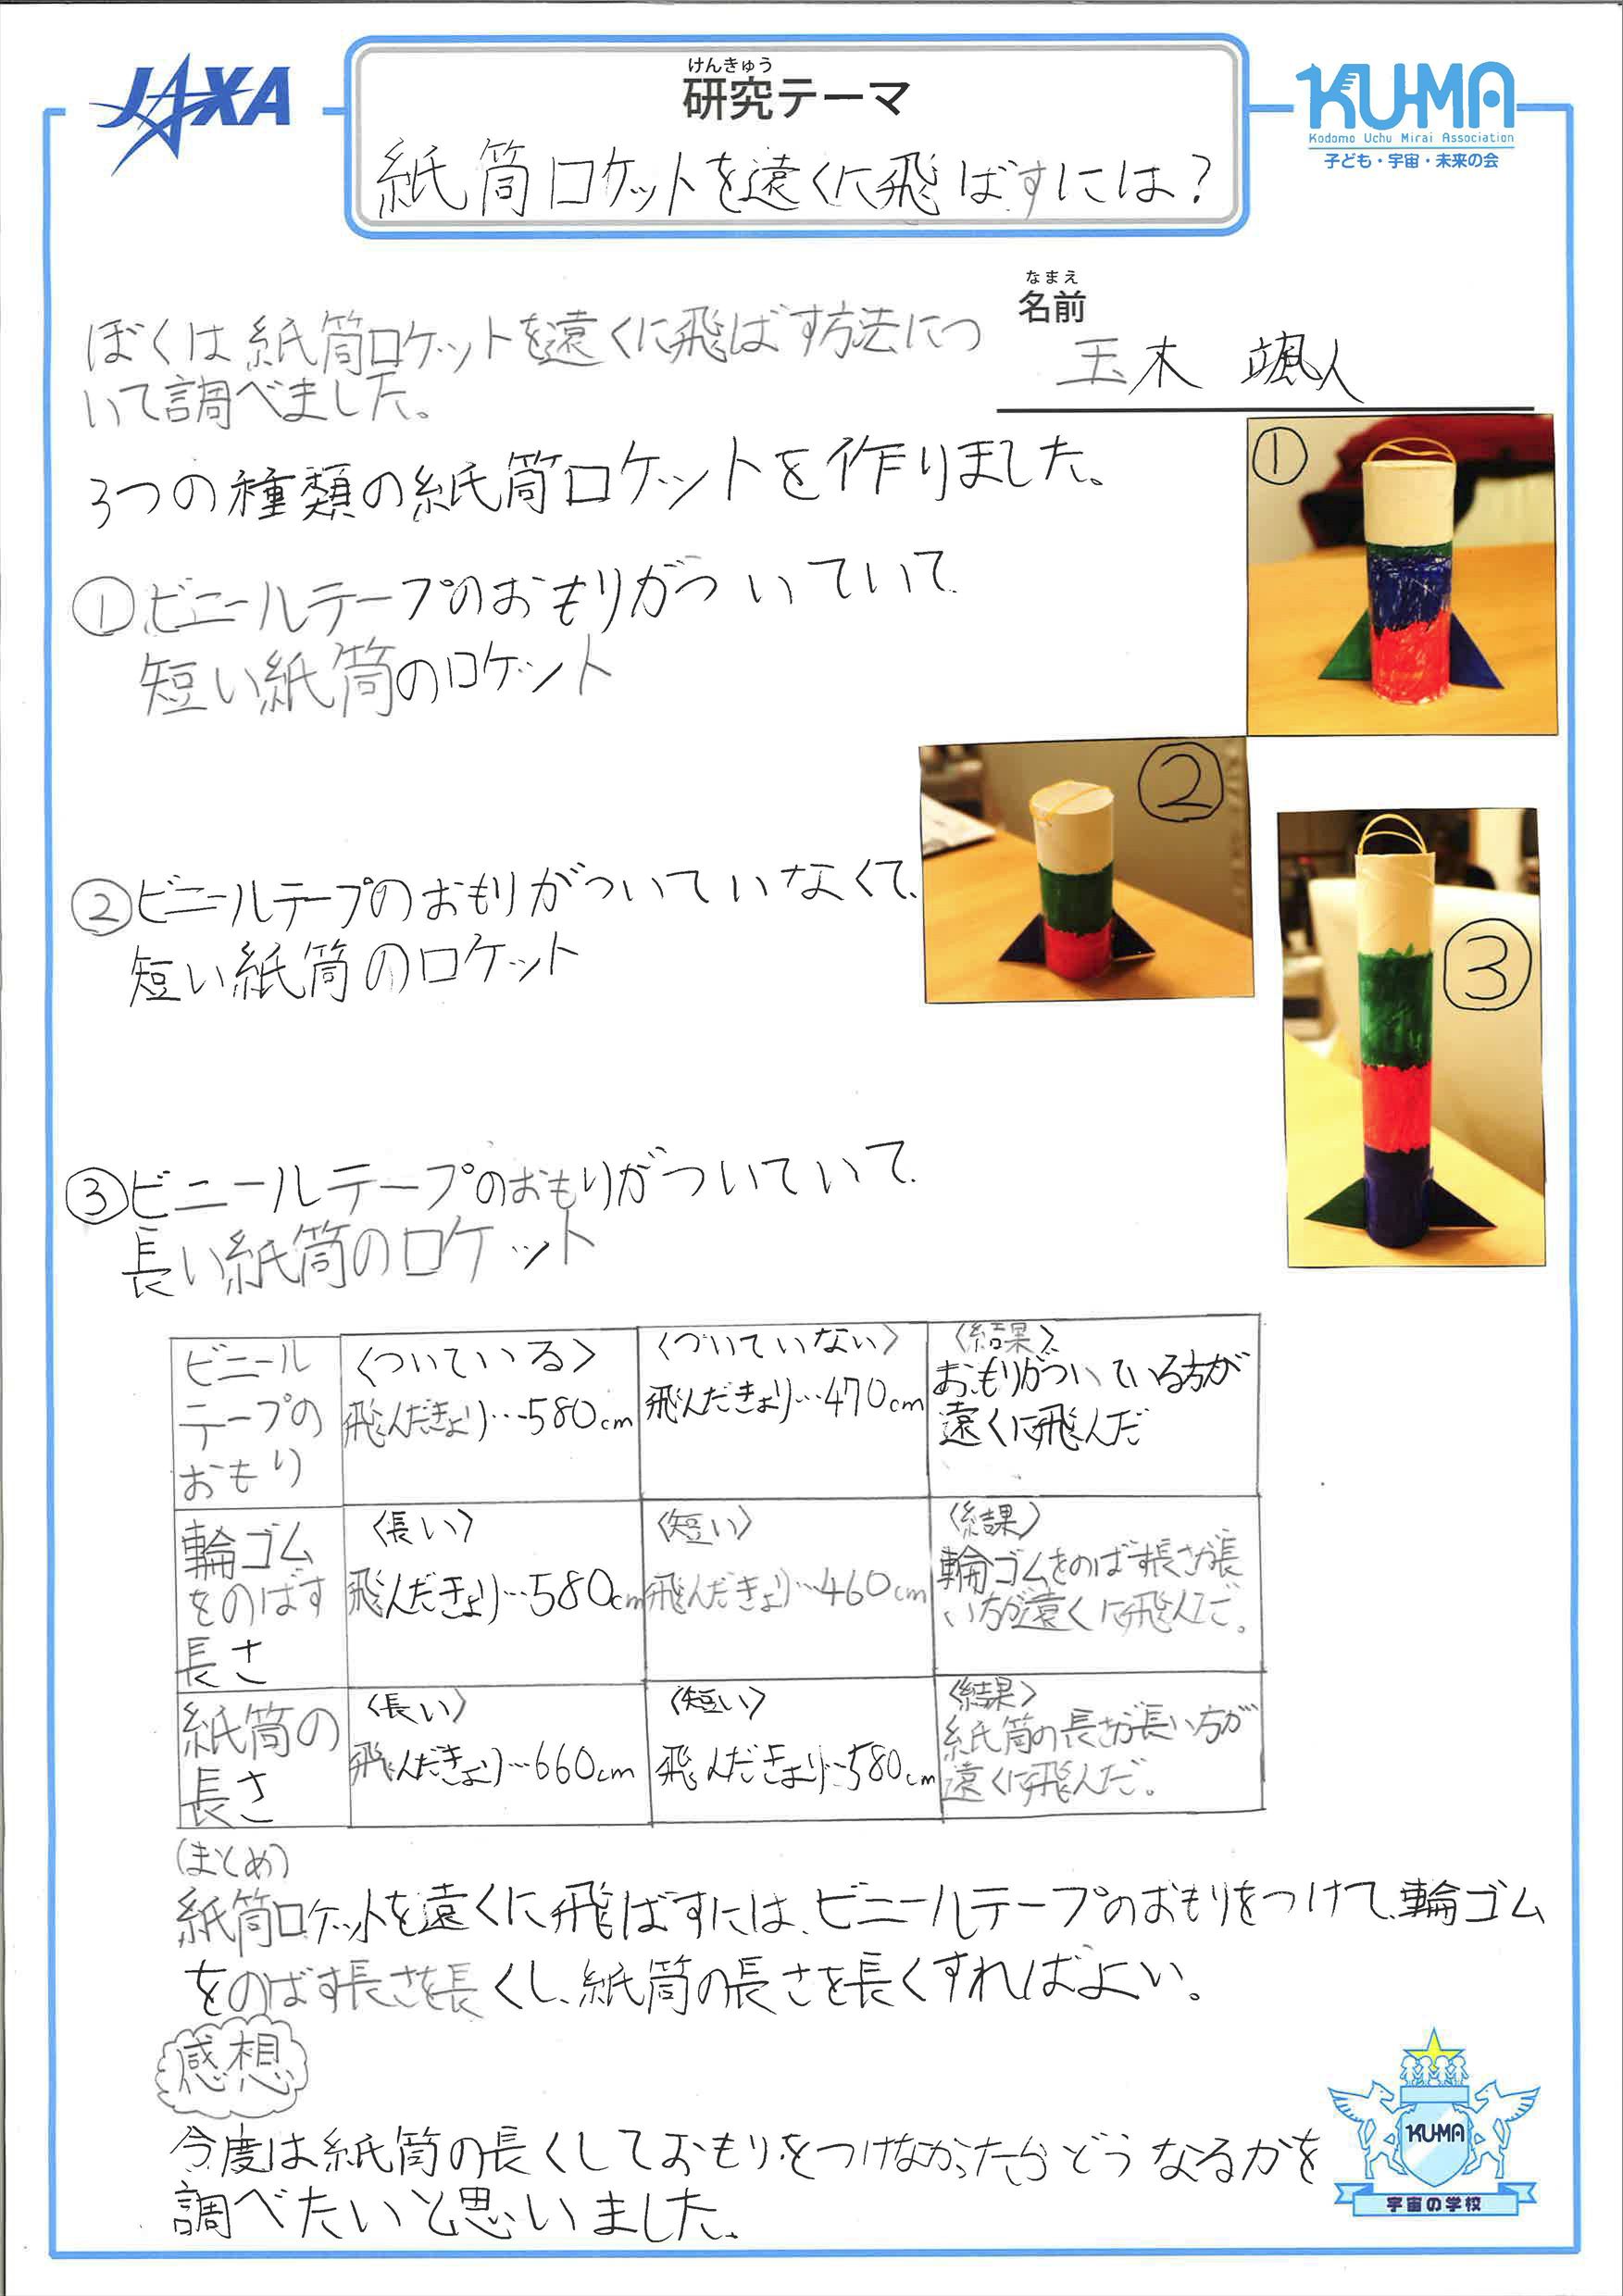 JAXA
けんきゅう
研究テーマ
紙筒ロケットを遠くに飛ばすには?
KUMA
Kodomo Uchu Mirai Association
子ども・宇宙・未来の会
なまえ
名前
玉木 颯人
ぼくは紙筒ロケットを遠くに飛ばす方法につ
いて調べました。
3つの種類の紙筒ロケットを作りました。
①ビニールテープのおもりがついていて、
短い紙筒のロケット
①
②ビニールテープのおもりがついていなくて、
短い紙筒のロケット
②
③ビニールテープのおもりがついていて、
長い紙筒のロケット
③
ビニール
テープの
おもり
〈ついている〉
飛んだきょり…580cm
〈ついていない〉
飛んだきょり…470cm
〈結果〉
おもりがついている方が
遠くに飛んだ
輪ゴム
をのばす
長さ
〈長い〉
飛んだきょり…580cm
〈短い〉
飛んだきょり…460cm
〈結果〉
輪ゴムをのばす長さが長
い方が遠くに飛んだ。
紙筒の
長さ
〈長い〉
飛んだきょり…660cm
〈短い〉
飛んだきょり…580cm
〈結果〉
紙筒の長さが長い方が
遠くに飛んだ。
(まとめ)
紙筒ロケットを遠くに飛ばすには、ビニールテープのおもりをつけて、輪ゴム
をのばす長さを長くし、紙筒の長さを長くすればよい。
感想
今度は紙筒の長くしておもりをつけなかったらどうなるかを
調べたいと思いました。
KUMA
宇宙の学校